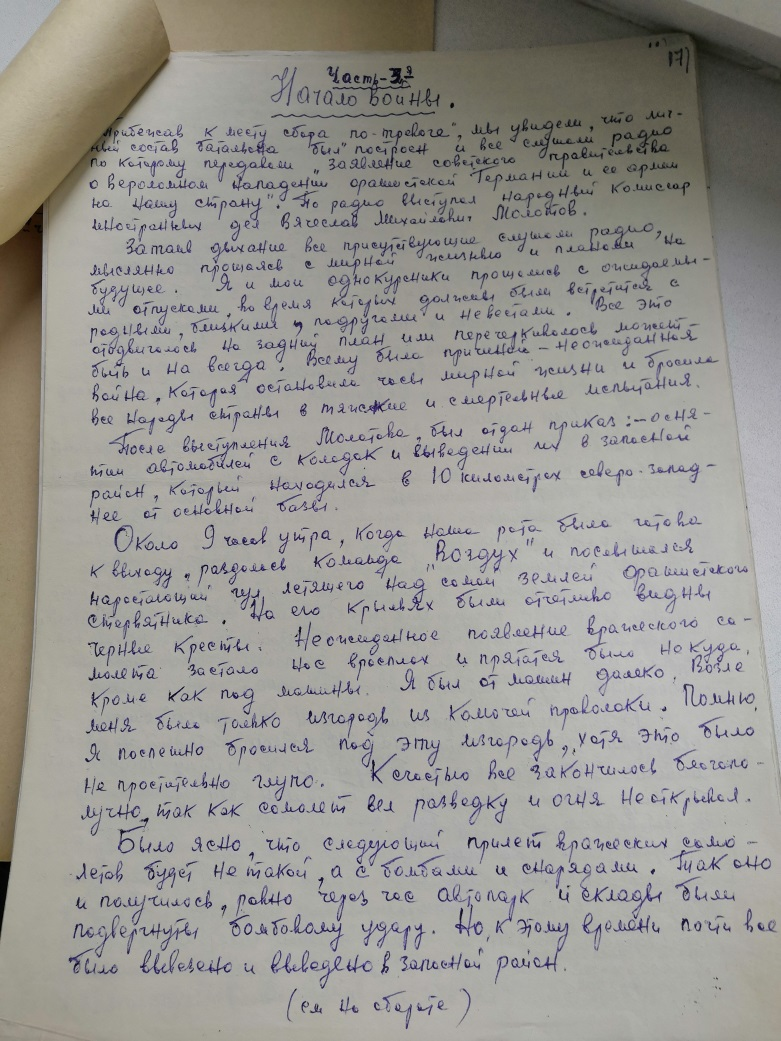 17)
Часть-3я
Начало войны.
Прибежав к месту сбора по-тревоге", мы увидели, что лич-
ный состав батальона был построен и все слушали радио
по которому передавали „заявление советского правительства
о вероломном нападении фашистской Германии и ее армии
на нашу страну". По радио выступал народный комиссар
иностранных дел Вячеслав Михайлович Молотов.
Затаив дыхание все присутствующие слушали радио,
мысленно прощаясь с мирной жизнью и планами на
будущее. Я и мои однокурсники прощались с ожидаемы-
ми отпусками, во время которых должны были встретится с
родными, близкими, подругами и невестами. Все это
отодвигалось на задний план или перечеркивалось может
быть и на всегда. Всему была причиной - неожиданная
война, которая остановила часы мирной жизни и бросила
все народы страны в тяжкие и смертельные испытания.
После выступления Молотова, был отдан приказ:-о сня-
тии автомобилей с колодок и выведении их в запасной
район, который находился в 10 километрах северо-запад-
нее от основной базы.
Около 9 часов утра, когда наша рота была готова
к выходу, раздалась команда „Воздух" и послышался
наростающий гул, летящего над самой землей фашистского
стервятника. На его крыльях были отчетливо видны
черные кресты. Неожиданное появление вражеского са-
молета застало нас врасплох и прятатся было некуда,
кроме как под машины. Я был от машин далеко. Возле
меня была только изгородь из колючей проволоки. Помню,
я поспешно бросился под эту изгородь, хотя это было
не простительно глупо. К счастью все закончилось благопо-
лучно, так как самолет вел разведку и огня не открывал.
Было ясно, что следующий прилет вражеских само-
летов будет не такой, а с бомбами и снарядами. Так оно
и получилось, ровно через час автопарк и склады были
подвергнуты бомбовому удару. Но, к этому времени почти все
было вывезено и выведено в запасной район.
(см на обороте)